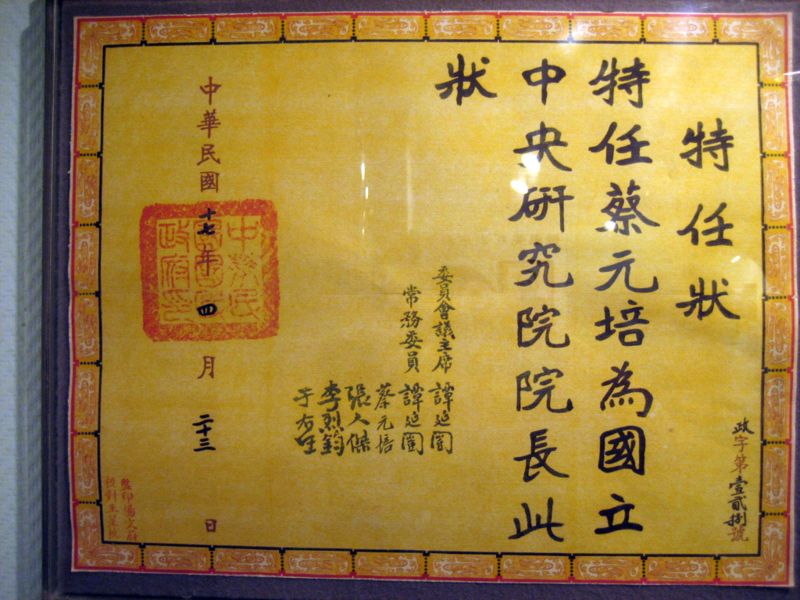 特任狀
特任蔡元培為國立
中央研究院院長此
狀
委員會議主席 譚延闓
常務委員 譚延闓
蔡元培
張人傑
李烈鈞
于右任
中華民國十七年四月二十三日
政字第壹貳捌號
中華民國國民政府印